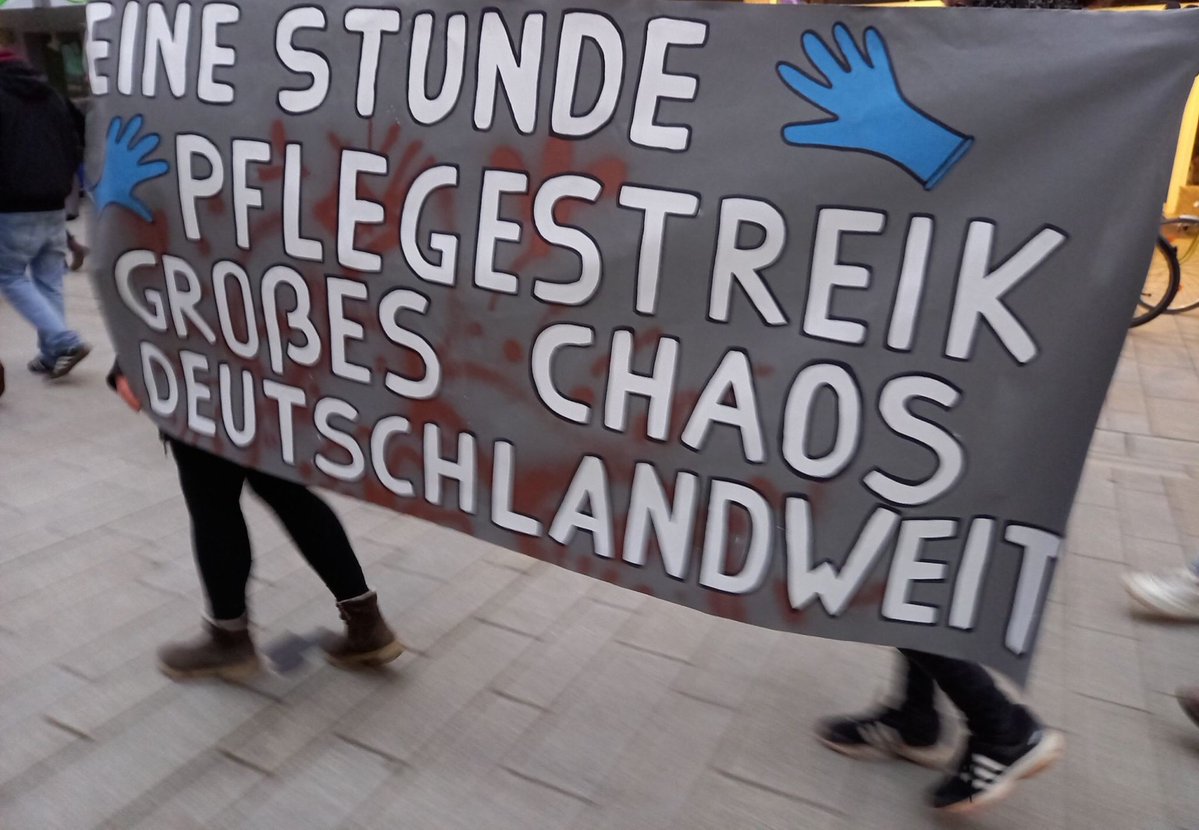 EINE STUNDE
PFLEGESTREIK
GROßES CHAOS
DEUTSCHLANDWEIT